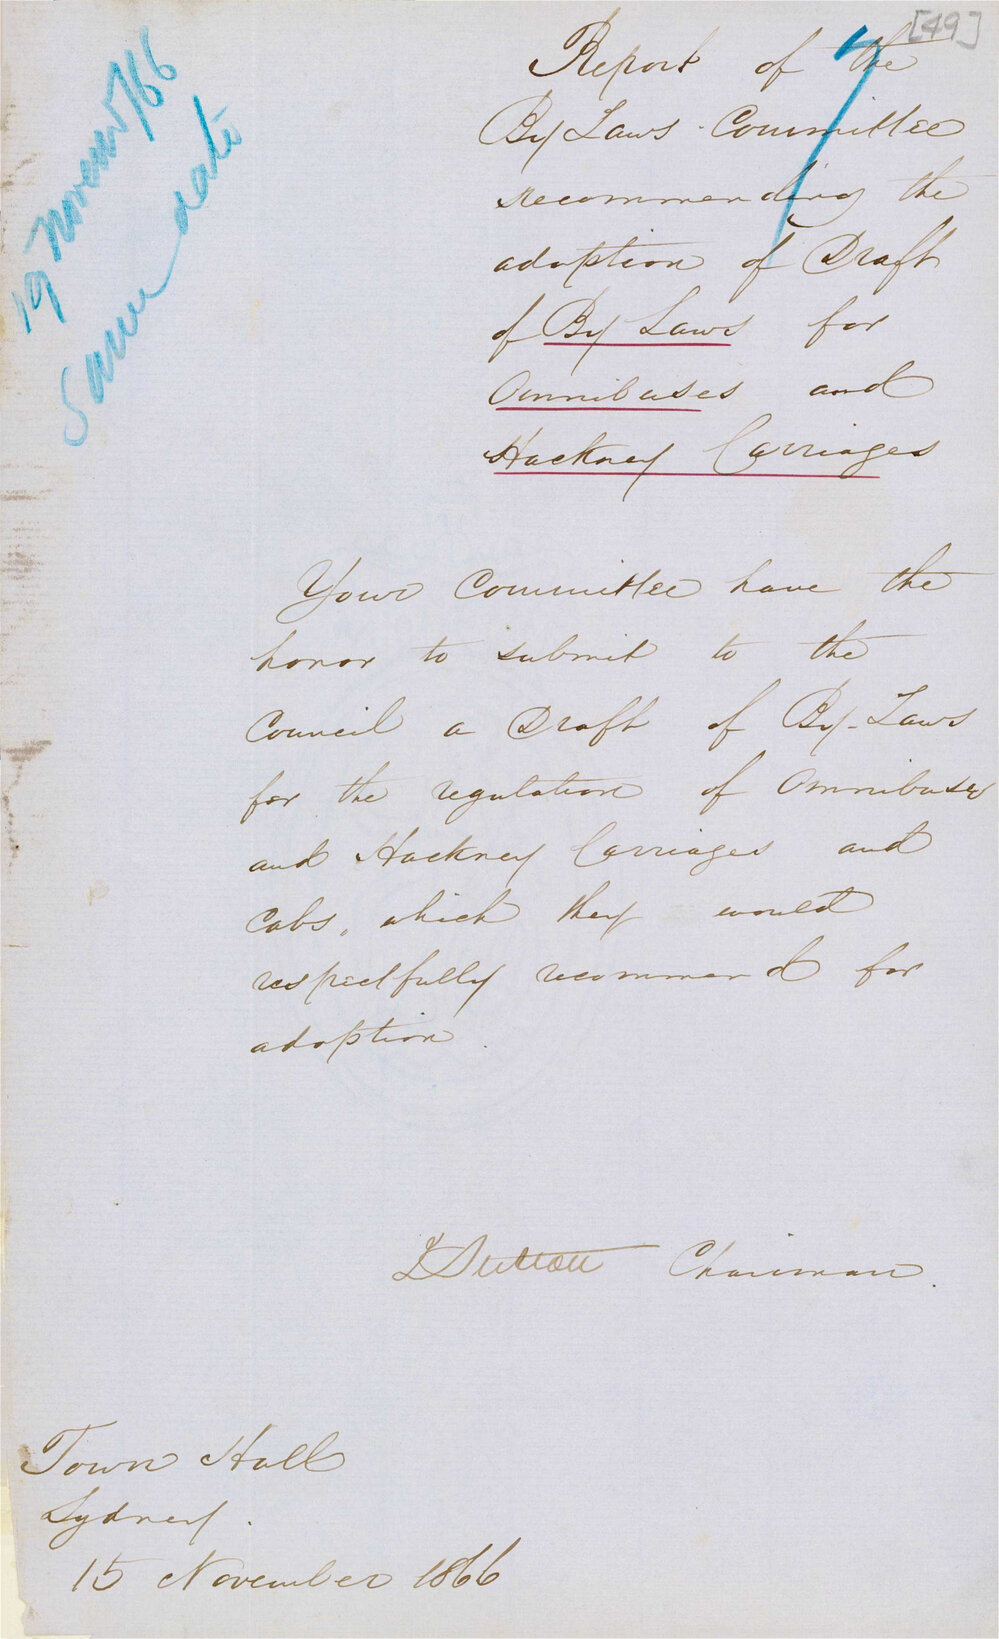 [49]
7
19 November/66
Same date
Report of the
By Laws Committee
recommending the
adoption of Draft
of By Laws for
Omnibuses and
Hackney Carriages
Your Committee have the
honor to submit to the
Council a Draft of By-Laws
for the regulation of Omnibuses
and Hackney Carriages and
Cabs, which they would
respectfully recommend for
adoption.
Sutton Chairman.
Town Hall
Sydney.
15 November 1866